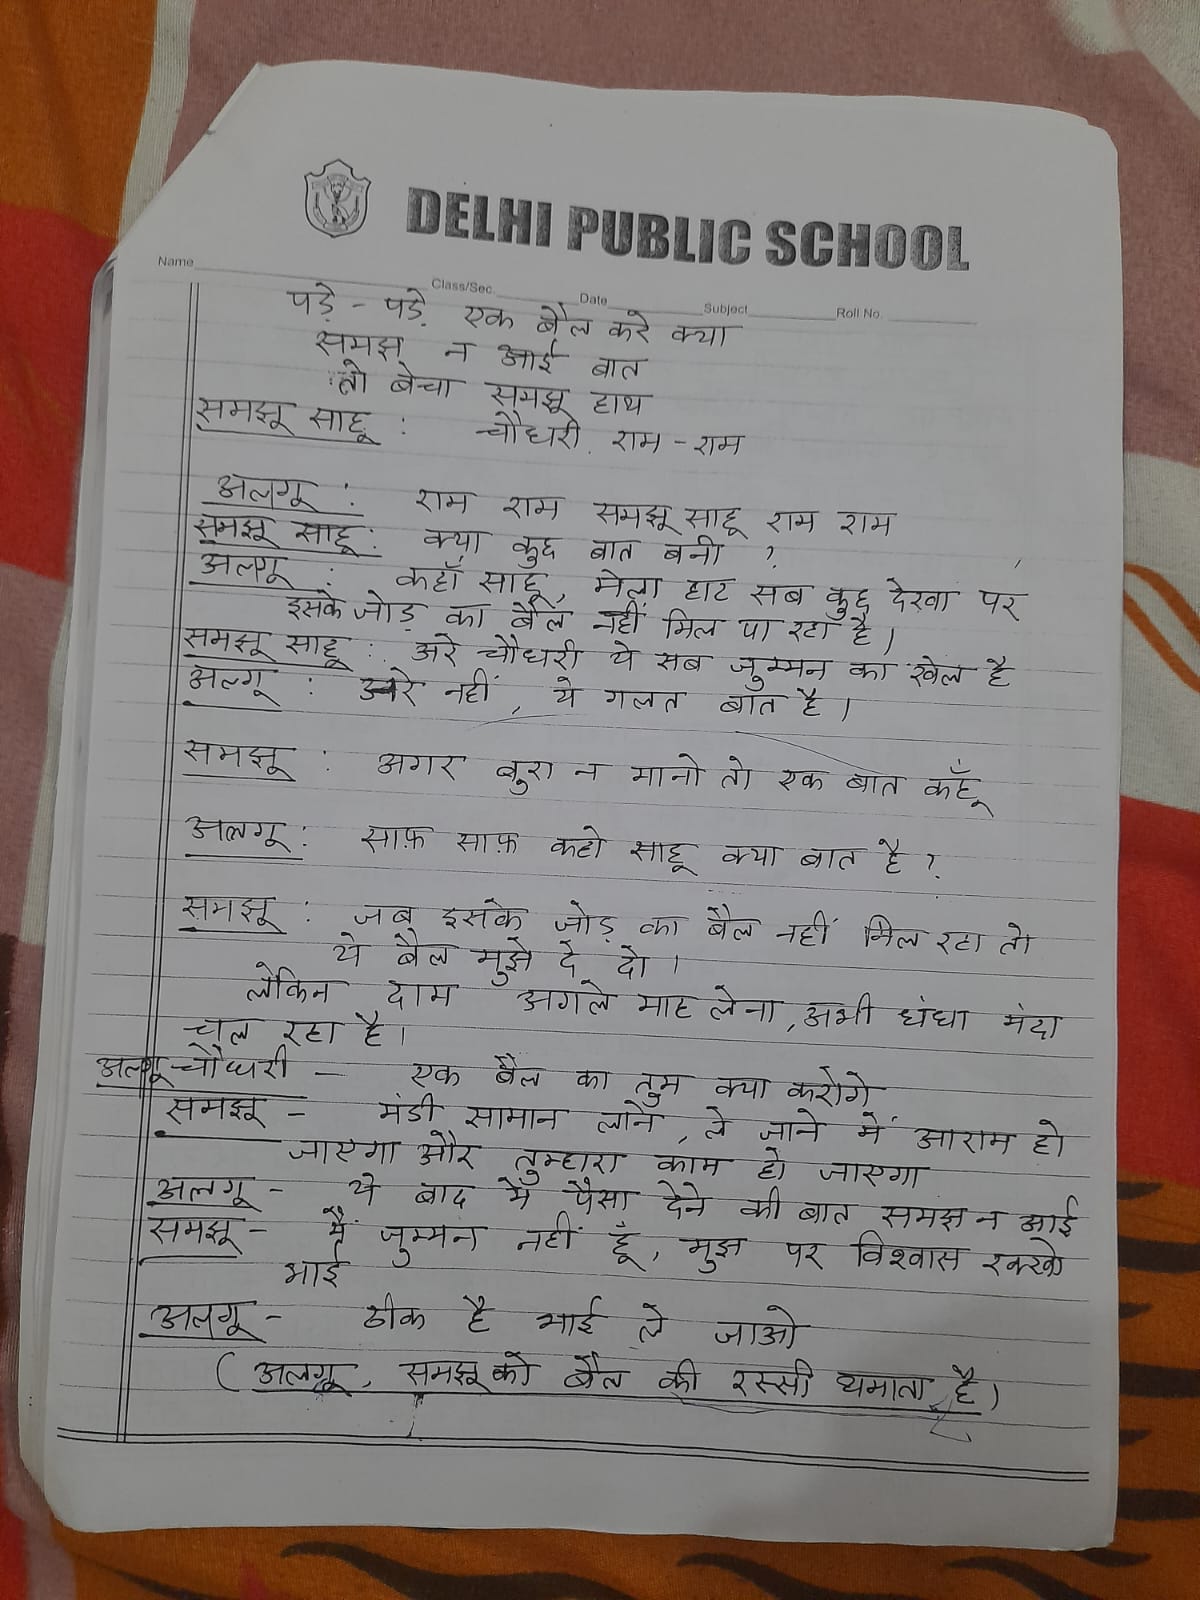 DELHI PUBLIC SCHOOL
Name Class/Sec. Date Subject Roll No.
पड़े - पड़े एक बैल करे क्या
समझ न आई बात
तो बेचा समझू हाथ
समझू साहू : चौधरी राम - राम
अलगू : राम राम समझू साहू राम राम
समझू साहू : क्या कुछ बात बनी ?
अलगू : कहाँ साहू, मेला हाट सब कुछ देखा पर
इसके जोड़ का बैल नहीं मिल पा रहा है।
समझू साहू : अरे चौधरी ये सब जुम्मन का खेल है
अलगू : अरे नहीं, ये गलत बात है।
समझू : अगर बुरा न मानो तो एक बात कहूँ
अलगू : साफ़ साफ़ कहो साहू क्या बात है ?
समझू : जब इसके जोड़ का बैल नहीं मिल रहा तो
ये बैल मुझे दे दो।
लेकिन दाम अगले माह लेना, अभी धंधा मंदा
चल रहा है।
अलगू चौधरी - एक बैल का तुम क्या करोगे
समझू - मंडी सामान लाने, ले जाने में आराम हो
जाएगा और तुम्हारा काम हो जाएगा
अलगू - ये बाद में पैसा देने की बात समझ न आई
समझू - मैं जुम्मन नहीं हूँ, मुझ पर विश्वास रक्खो
भाई
अलगू - ठीक है भाई ले जाओ
(अलगू, समझू को बैल की रस्सी थमाता है)